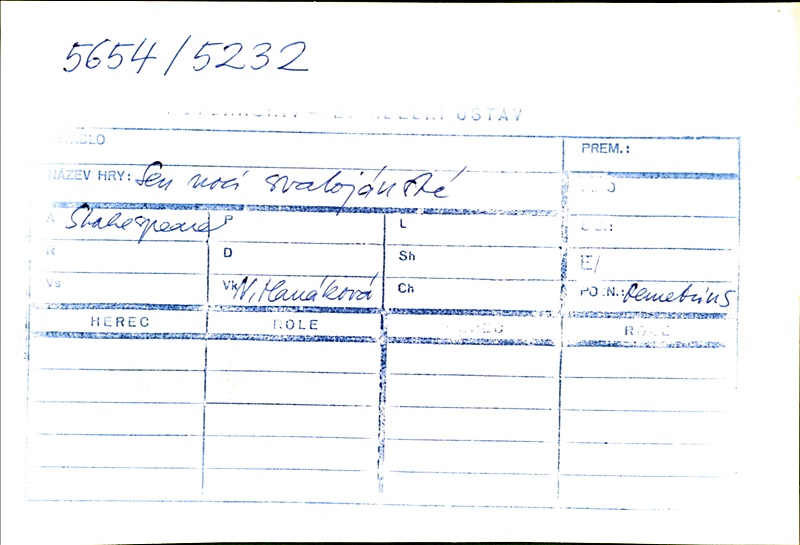 5654/5232
ÚSTAV
PREM.:
NÁZEV HRY: Sen noci svatojánské
A Shakespeare
L
R
D
Sh
E/
Vs
Vk N. Hanáková
Ch
POZN.: Demetrius
HEREC
ROLE
HEREC
ROLE